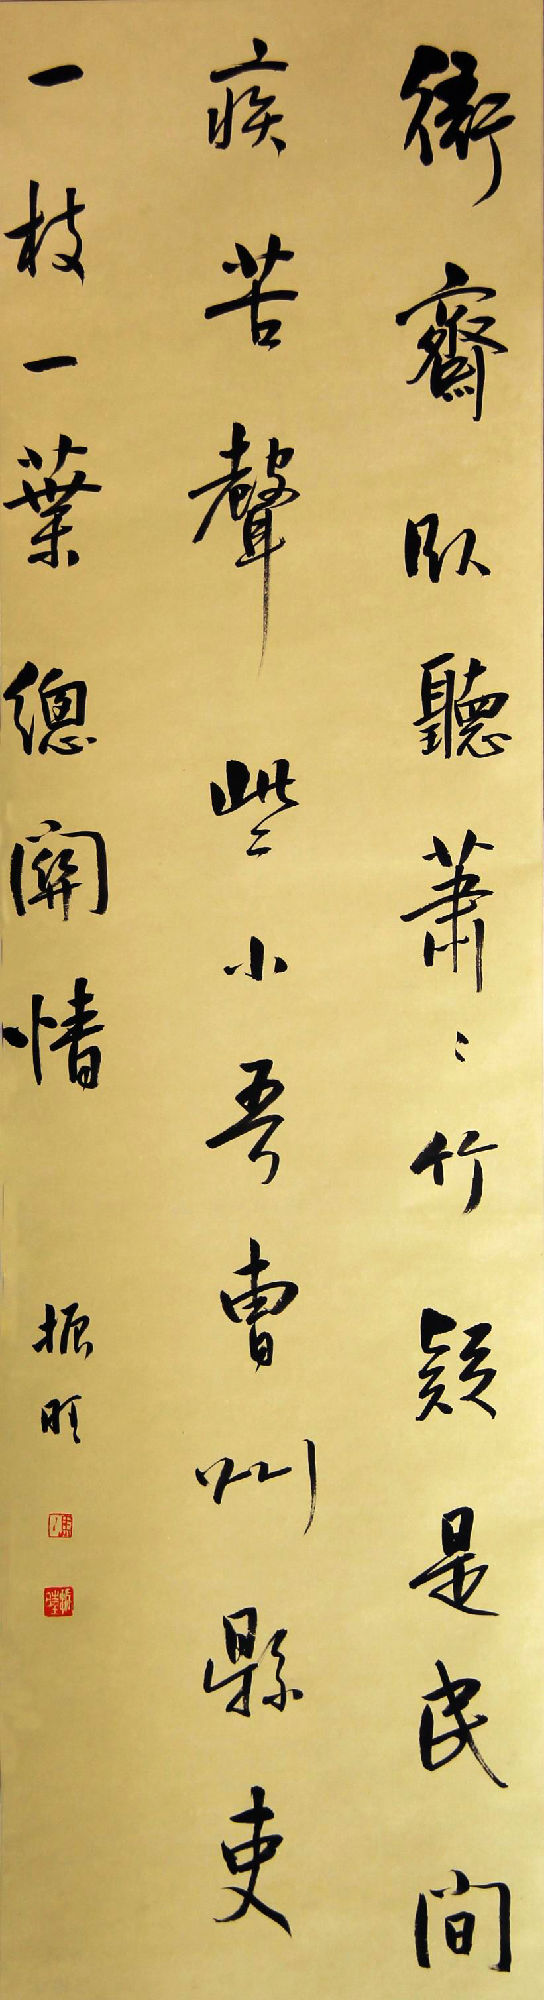 衙齋臥聽蕭〻竹疑是民間
疾苦聲些小吾曹州縣吏
一枝一葉總關情
振旺